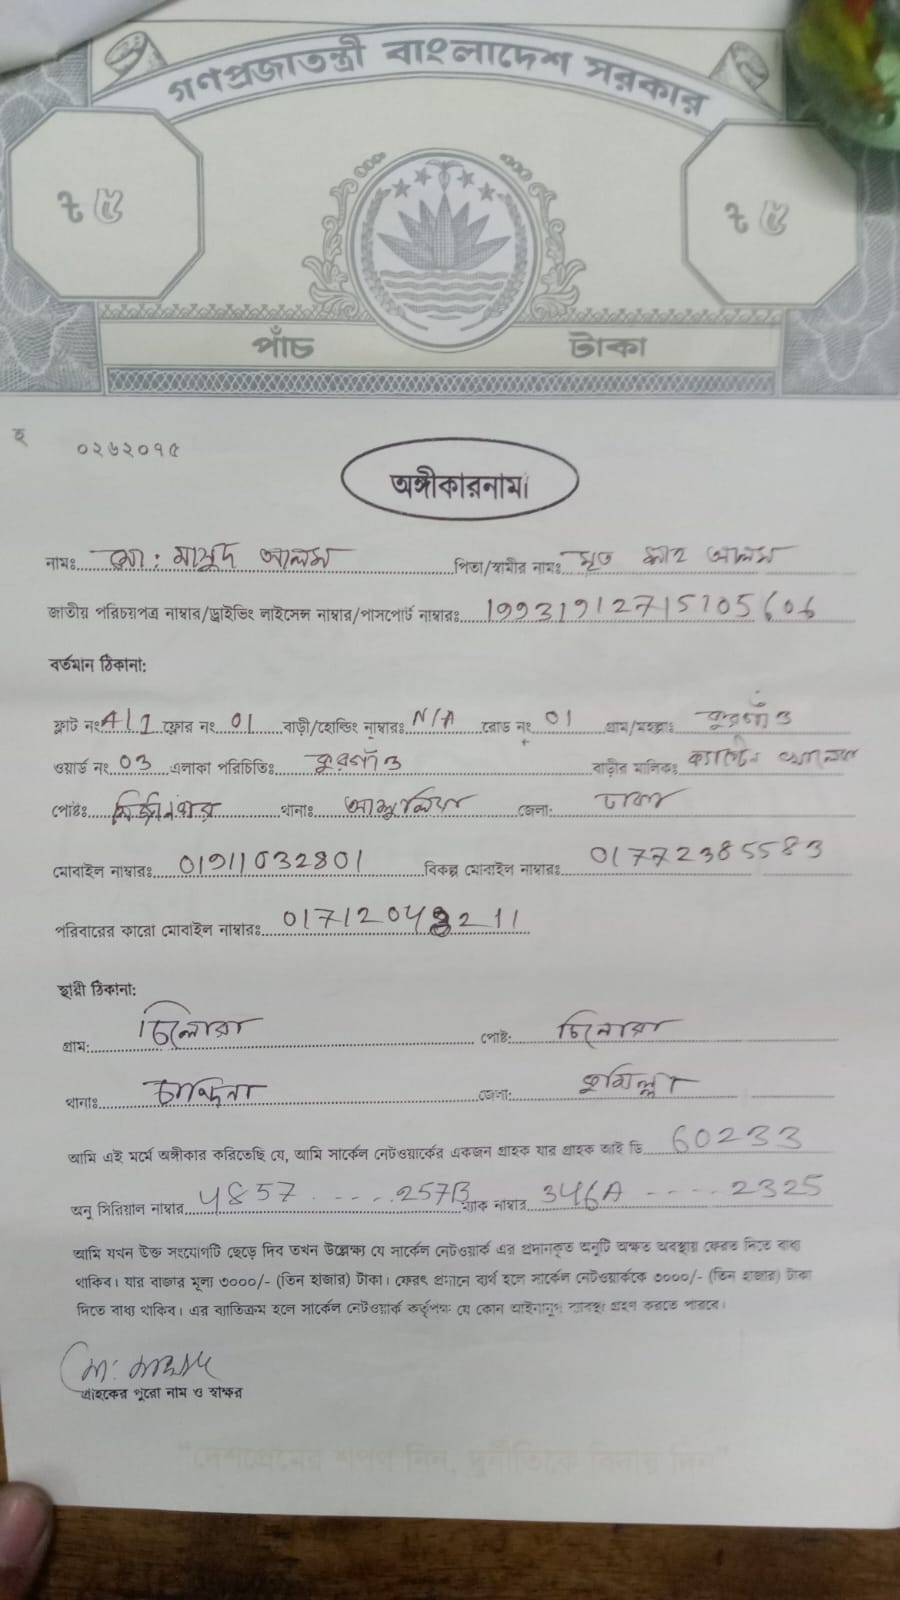 গণপ্রজাতন্ত্রী বাংলাদেশ সরকার
৳ ৫ ৳ ৫
পাঁচ টাকা
হ
০২৬২০৭৫
অঙ্গীকারনামা
নামঃ মো: মাসুদ আলম পিতা/স্বামীর নামঃ মৃত শাহ আলম
জাতীয় পরিচয়পত্র নাম্বার/ড্রাইভিং লাইসেন্স নাম্বার/পাসপোর্ট নাম্বারঃ 19931912715105606
বর্তমান ঠিকানা:
ফ্লাট নং A/1 ফ্লোর নং 01 বাড়ী/হোল্ডিং নাম্বারঃ N/A রোড নং 01 গ্রাম/মহল্লাঃ কুরগাঁও
ওয়ার্ড নং 03 এলাকা পরিচিতিঃ কুরগাঁও বাড়ীর মালিকঃ ক্যাপ্টেন
পোষ্টঃ থানাঃ আশুলিয়া জেলা: ঢাকা
মোবাইল নাম্বারঃ 01911032801 বিকল্প মোবাইল নাম্বারঃ 01772385583
পরিবারের কারো মোবাইল নাম্বারঃ
স্থায়ী ঠিকানা:
গ্রাম: চিলোরা পোষ্ট: চিলোরা
থানাঃ চান্দিনা জেলা: কুমিল্লা
আমি এই মর্মে অঙ্গীকার করিতেছি যে, আমি সার্কেল নেটওয়ার্কের একজন গ্রাহক যার গ্রাহক আই ডি 60233
অনু সিরিয়াল নাম্বার 4857 ..... 257B ম্যাক নাম্বার 346A ----- 2325
আমি যখন উক্ত সংযোগটি ছেড়ে দিব তখন উল্লেক্ষ্য যে সার্কেল নেটওয়ার্ক এর প্রদানকৃত অনুটি অক্ষত অবস্থায় ফেরত দিতে বাধ্য
থাকিব। যার বাজার মূল্য ৩০০০/- (তিন হাজার) টাকা। ফেরৎ প্রদানে ব্যর্থ হলে সার্কেল নেটওয়ার্ককে ৩০০০/- (তিন হাজার) টাকা
দিতে বাধ্য থাকিব। এর ব্যাতিক্রম হলে সার্কেল নেটওয়ার্ক কর্তৃপক্ষ যে কোন আইনানুগ ব্যবস্থা গ্রহণ করতে পারবে।
মো: মাসুদ
গ্রাহকের পুরো নাম ও স্বাক্ষর
"দেশপ্রেমের শপথ নিন, দুর্নীতিকে বিদায় দিন"